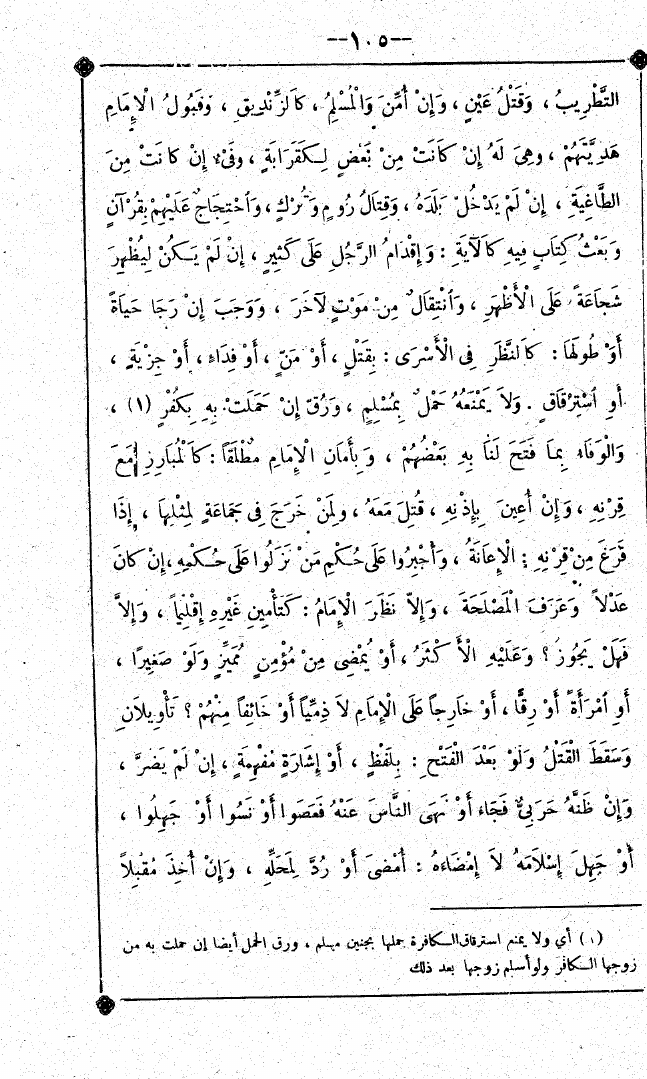 --١٠٥--
التَّطْرِيبُ ، وَقَتْلُ عَيْنٍ ، وَإِنْ أُمِّنَ وَالْمُسْلِمُ ، كَالزِّنْدِيقِ ، وَقَبُولُ الْإِمَامِ
هَدِيَّتَهُمْ ، وَهِىَ لَهُ إِنْ كَانَتْ مِنْ بَعْضٍ لِكَقَرَابَةٍ ، وَفَىْءٌ إِنْ كَانَتْ مِنَ
الطَّاغِيَةِ ، إِنْ لَمْ يَدْخُلْ بَلَدَهُ ، وَقِتَالُ رُومٍ وَتُرْكٍ ، وَاحْتِجَاجٌ عَلَيْهِمْ بِقُرْآنٍ
وَبَعْثُ كِتَابٍ فِيهِ كَالْآيَةِ : وَإِقْدَامُ الرَّجُلِ عَلَى كَثِيرٍ ، إِنْ لَمْ يَكُنْ لِيُظْهِرَ
شَجَاعَةً عَلَى الْأَظْهَرِ ، وَانْتِقَالٌ مِنْ مَوْتٍ لِآخَرَ ، وَوَجَبَ إِنْ رَجَا حَيَاةً
أَوْ طُولَهَا : كَالنَّظَرِ فِى الْأَسْرَى : بِقَتْلٍ ، أَوْ مَنٍّ ، أَوْ فِدَاءٍ ، أَوْ جِزْيَةٍ ،
أَوِ اسْتِرْقَاقٍ . وَلاَ يَمْنَعُهُ حَمْلٌ بِمُسْلِمٍ ، وَرُقَّ إِنْ حَمَلَتْ بِهِ بِكُفْرٍ (١) ،
وَالْوَفَاءُ بِمَا فَتَحَ لَنَا بِهِ بَعْضُهُمْ ، وَبِأَمَانِ الْإِمَامِ مُطْلَقاً : كَالْمُبَارِزِ مَعَ
قِرْنِهِ ، وَإِنْ أُعِينَ بِإِذْنِهِ ، قُتِلَ مَعَهُ ، وَلِمَنْ خَرَجَ فِى جَمَاعَةٍ لِمِثْلِهَا ، إِذَا
فَرَغَ مِنْ قِرْنِهِ : الْإِعَانَةُ ، وَأُجْبِرُوا عَلَى حُكْمِ مَنْ نَزَلُوا عَلَى حُكْمِهِ ، إِنْ كَانَ
عَدْلاً وَعَرَفَ الْمَصْلَحَةَ ، وَإِلاَّ نَظَرَ الْإِمَامُ : كَتَأْمِينِ غَيْرِهِ إِقْلِيماً ، وَإِلاَّ
فَهَلْ يَجُوزُ ؟ وَعَلَيْهِ الْأَكْثَرُ ، أَوْ يُمْضِى مِنْ مُؤْمِنٍ مُمَيِّزٍ وَلَوْ صَغِيرًا ،
أَوِ امْرَأَةً أَوْ رِقًّا ، أَوْ خَارِجاً عَلَى الْإِمَامِ لاَ ذِمِّيًّا أَوْ خَائِفاً مِنْهُمْ ؟ تَأْوِيلاَنِ
وَسَقَطَ الْقَتْلُ وَلَوْ بَعْدَ الْفَتْحِ : بِلَفْظٍ ، أَوْ إِشَارَةٍ مُفْهِمَةٍ ، إِنْ لَمْ يَضُرَّ ،
وَإِنْ ظَنَّهُ حَرْبِىٌّ فَجَاءَ أَوْ نَهَى النَّاسَ عَنْهُ فَعَصَوْا أَوْ نَسُوا أَوْ جَهِلُوا ،
أَوْ جَهِلَ إِسْلاَمَهُ لاَ إِمْضَاءَهُ : أُمْضِىَ أَوْ رُدَّ لِمَحَلِّهِ ، وَإِنْ أُخِذَ مُقْبِلاً
(١) أي ولا يمنع استرقاق الكافرة حملها بجنين مسلم ، ورق الحمل أيضا إن حملت به من
زوجها الكافر ولو أسلم زوجها بعد ذلك